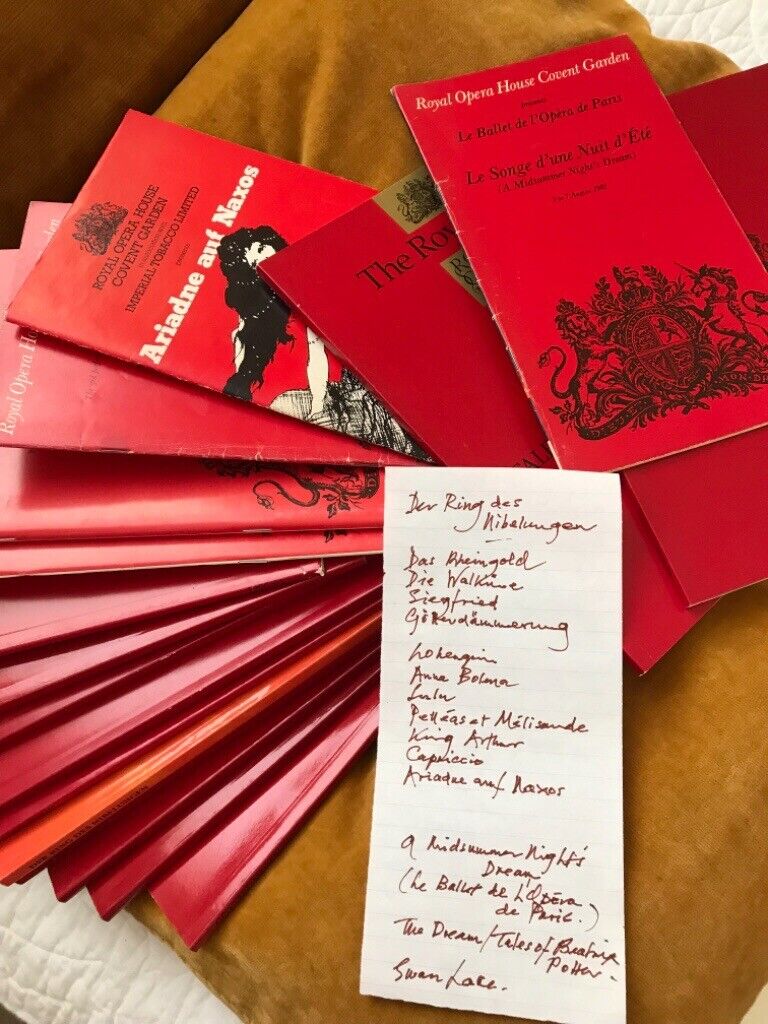 Royal Opera House Covent Garden
presents
Le Ballet de l'Opéra de Paris
Le Songe d'une Nuit d'Été
(A Midsummer Night's Dream)
ROYAL OPERA HOUSE
COVENT GARDEN
in association with
IMPERIAL TOBACCO LIMITED
presents
Ariadne auf Naxos
The Ro
Royal Opera Ho
Der Ring des
Nibelungen
Das Rheingold
Die Walküre
Siegfried
Götterdämmerung
Lohengrin
Anna Bolena
Lulu
Pelléas et Mélisande
King Arthur
Capriccio
Ariadne auf Naxos
A Midsummer Night's
Dream
(Le Ballet de L'Opéra
de Paris.)
The Dream/Tales of Beatrix
Potter.
Swan Lake.